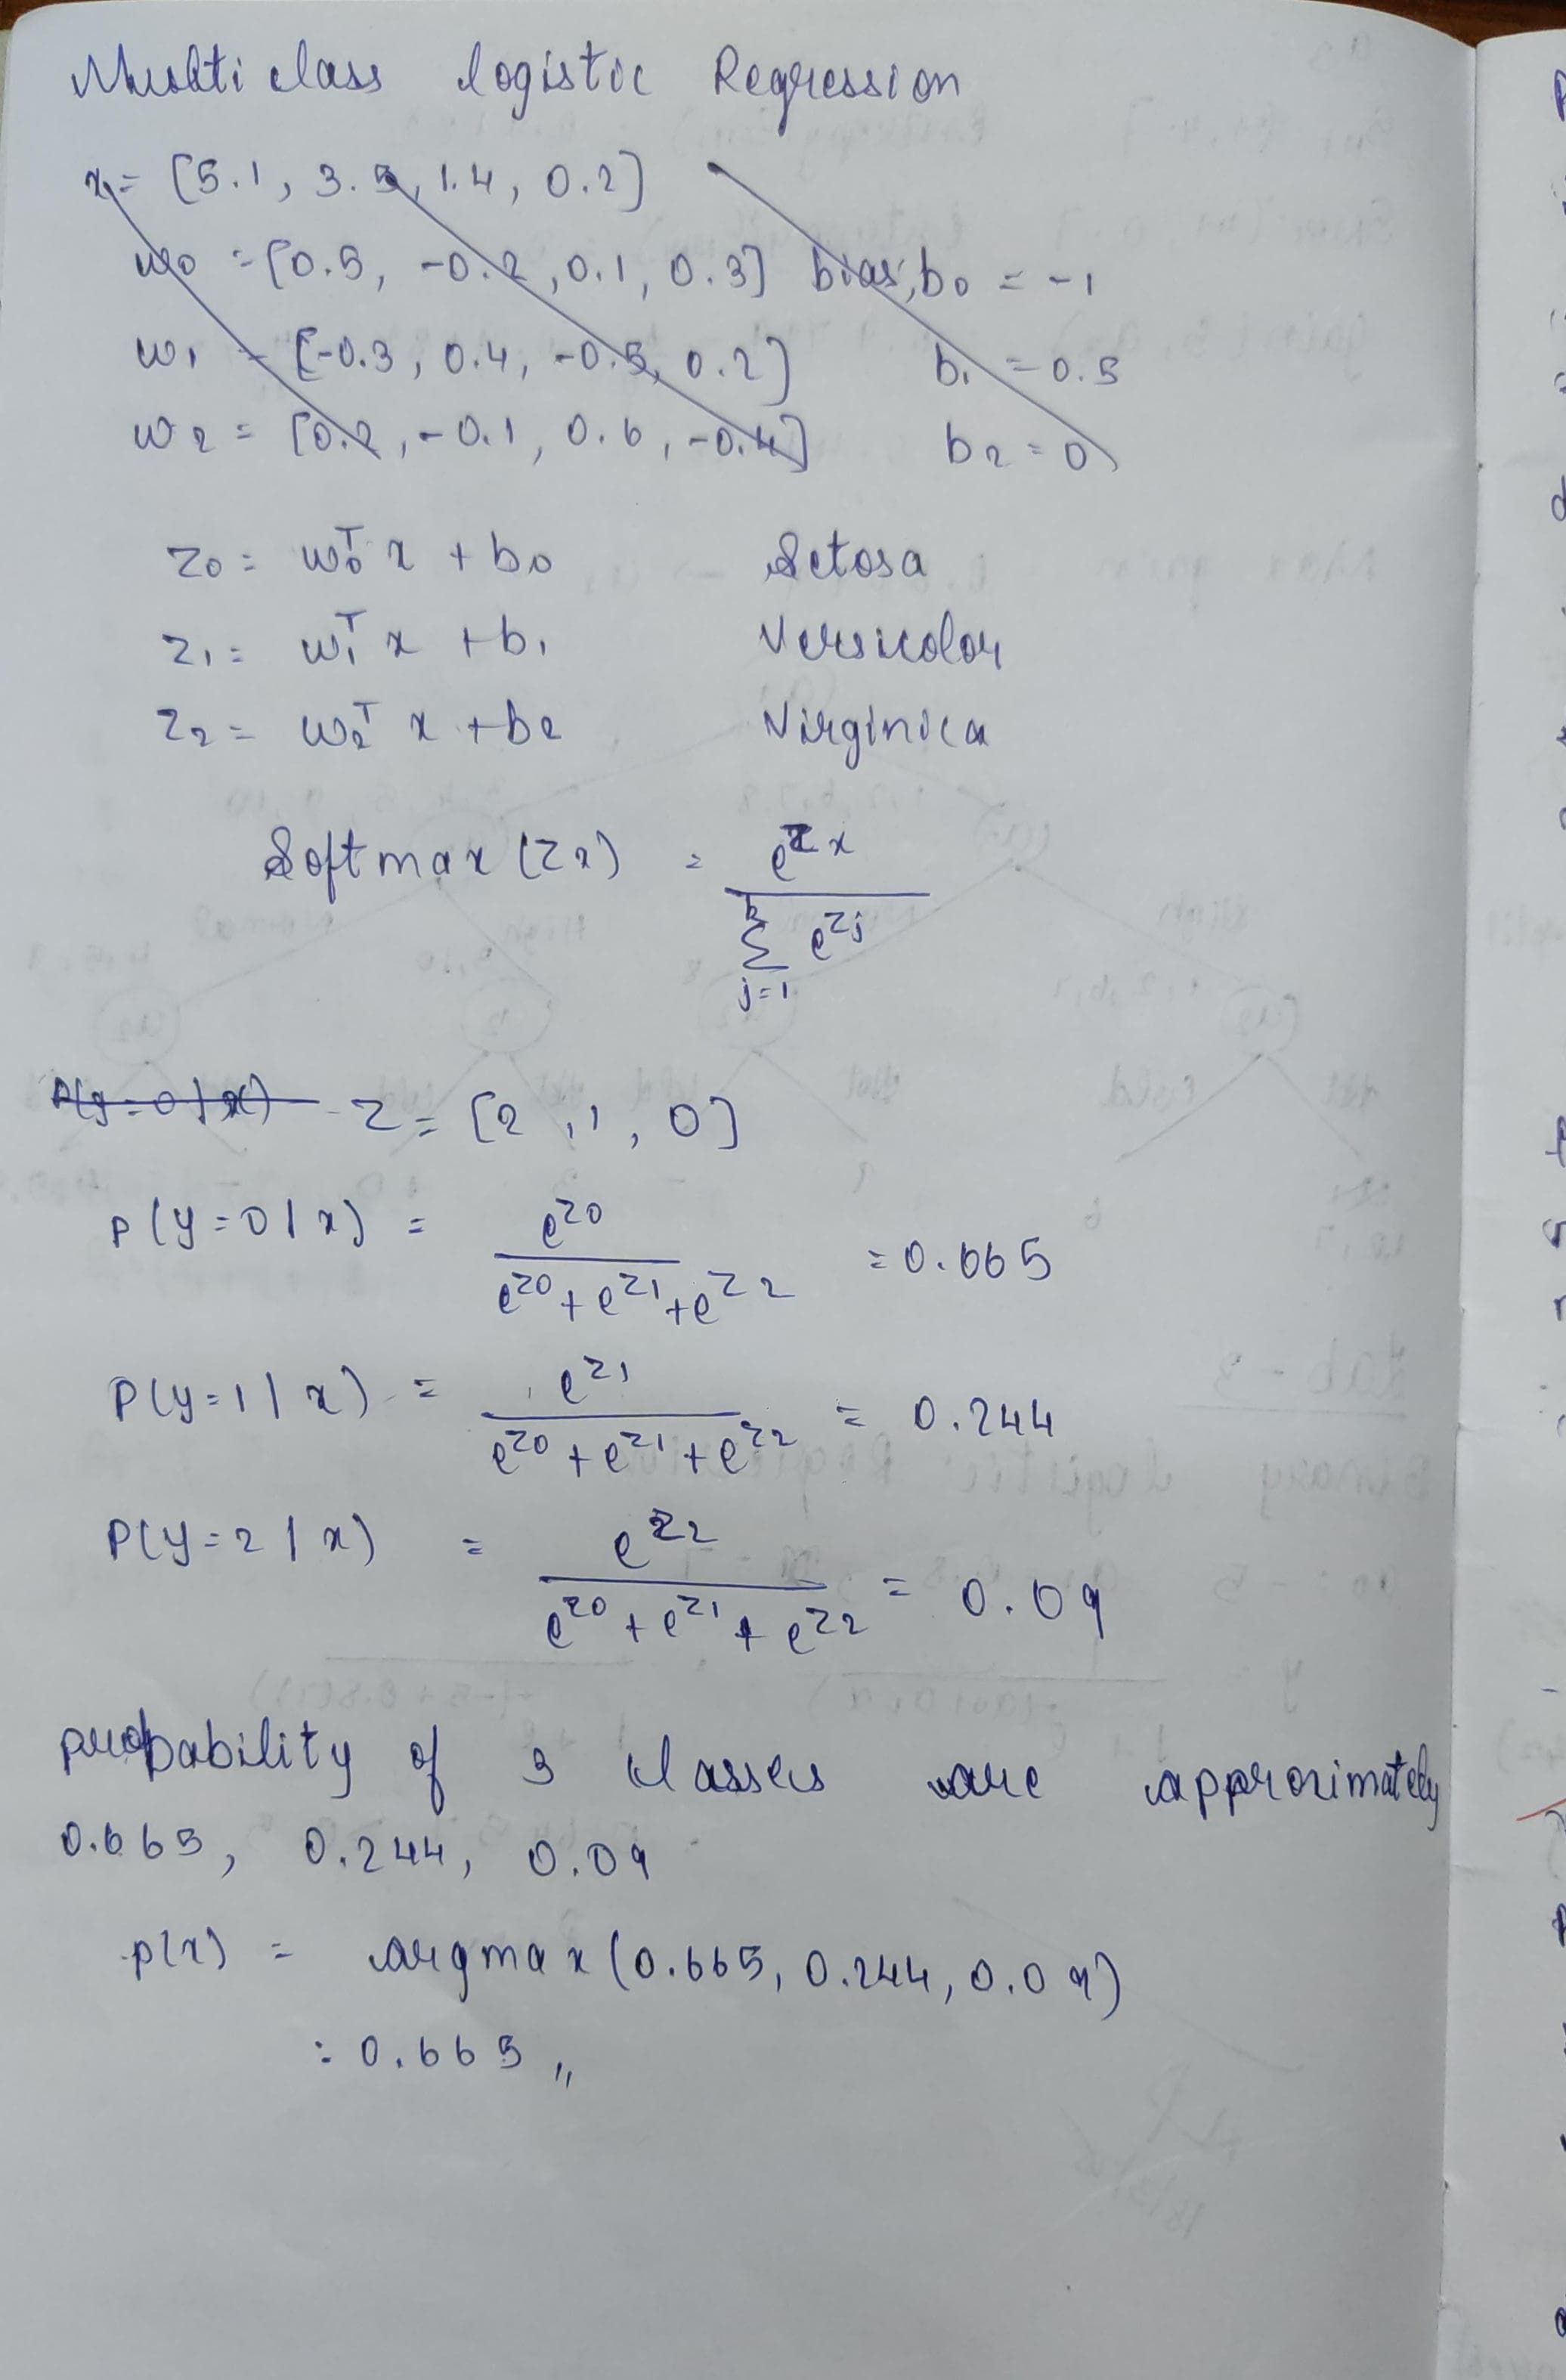 Multi class logistic Regression
x = [5.1, 3.5, 1.4, 0.2]
w0 = [0.5, -0.2, 0.1, 0.3] bias, b0 = -1
w1 = [-0.3, 0.4, -0.5, 0.2] b1 = 0.5
w2 = [0.2, -0.1, 0.6, -0.4] b2 = 0
z0 = w0ᵀ x + b0 Setosa
z1 = w1ᵀ x + b1 Versicolor
z2 = w2ᵀ x + b2 Virginica
Softmax (Zx) = e^zx / Σ_{j=1}^{k} e^zj
P(y=0|x) Z = [2, 1, 0]
P(y=0|x) = e^z0 / e^z0 + e^z1 + e^z2 = 0.665
P(y=1|x) = e^z1 / e^z0 + e^z1 + e^z2 = 0.244
P(y=2|x) = e^z2 / e^z0 + e^z1 + e^z2 = 0.09
probability of 3 classes are approximately
0.665, 0.244, 0.09
p(x) = argmax (0.665, 0.244, 0.09)
= 0.665 ,,